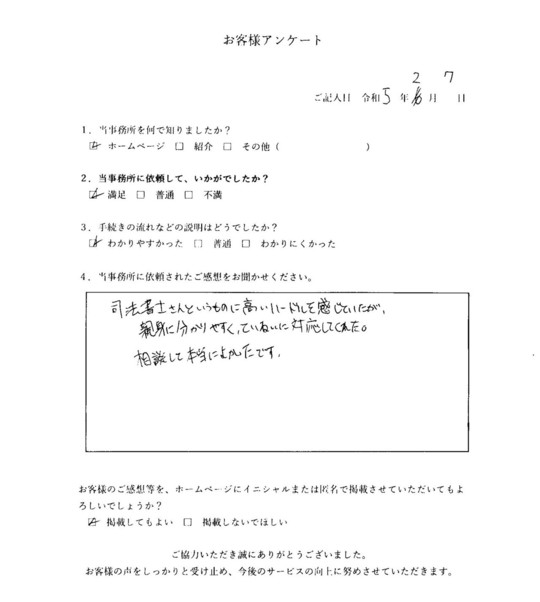 お客様アンケート
2 7
ご記入日 令和5年 月 日
1．当事務所を何で知りましたか？
☑ ホームページ □ 紹介 □ その他（ ）
2．当事務所に依頼して、いかがでしたか？
☑ 満足 □ 普通 □ 不満
3．手続きの流れなどの説明はどうでしたか？
☑ わかりやすかった □ 普通 □ わかりにくかった
4．当事務所に依頼されたご感想をお聞かせください。
司法書士さんというものに高いハードルを感じていたが、
親身に分かりやすく、ていねいに対応してくれた。
相談して本当によかったです。
お客様のご感想等を、ホームページにイニシャルまたは匿名で掲載させていただいてもよ
ろしいでしょうか？
☑ 掲載してもよい □ 掲載しないでほしい
ご協力いただき誠にありがとうございました。
お客様の声をしっかりと受け止め、今後のサービスの向上に努めさせていただきます。